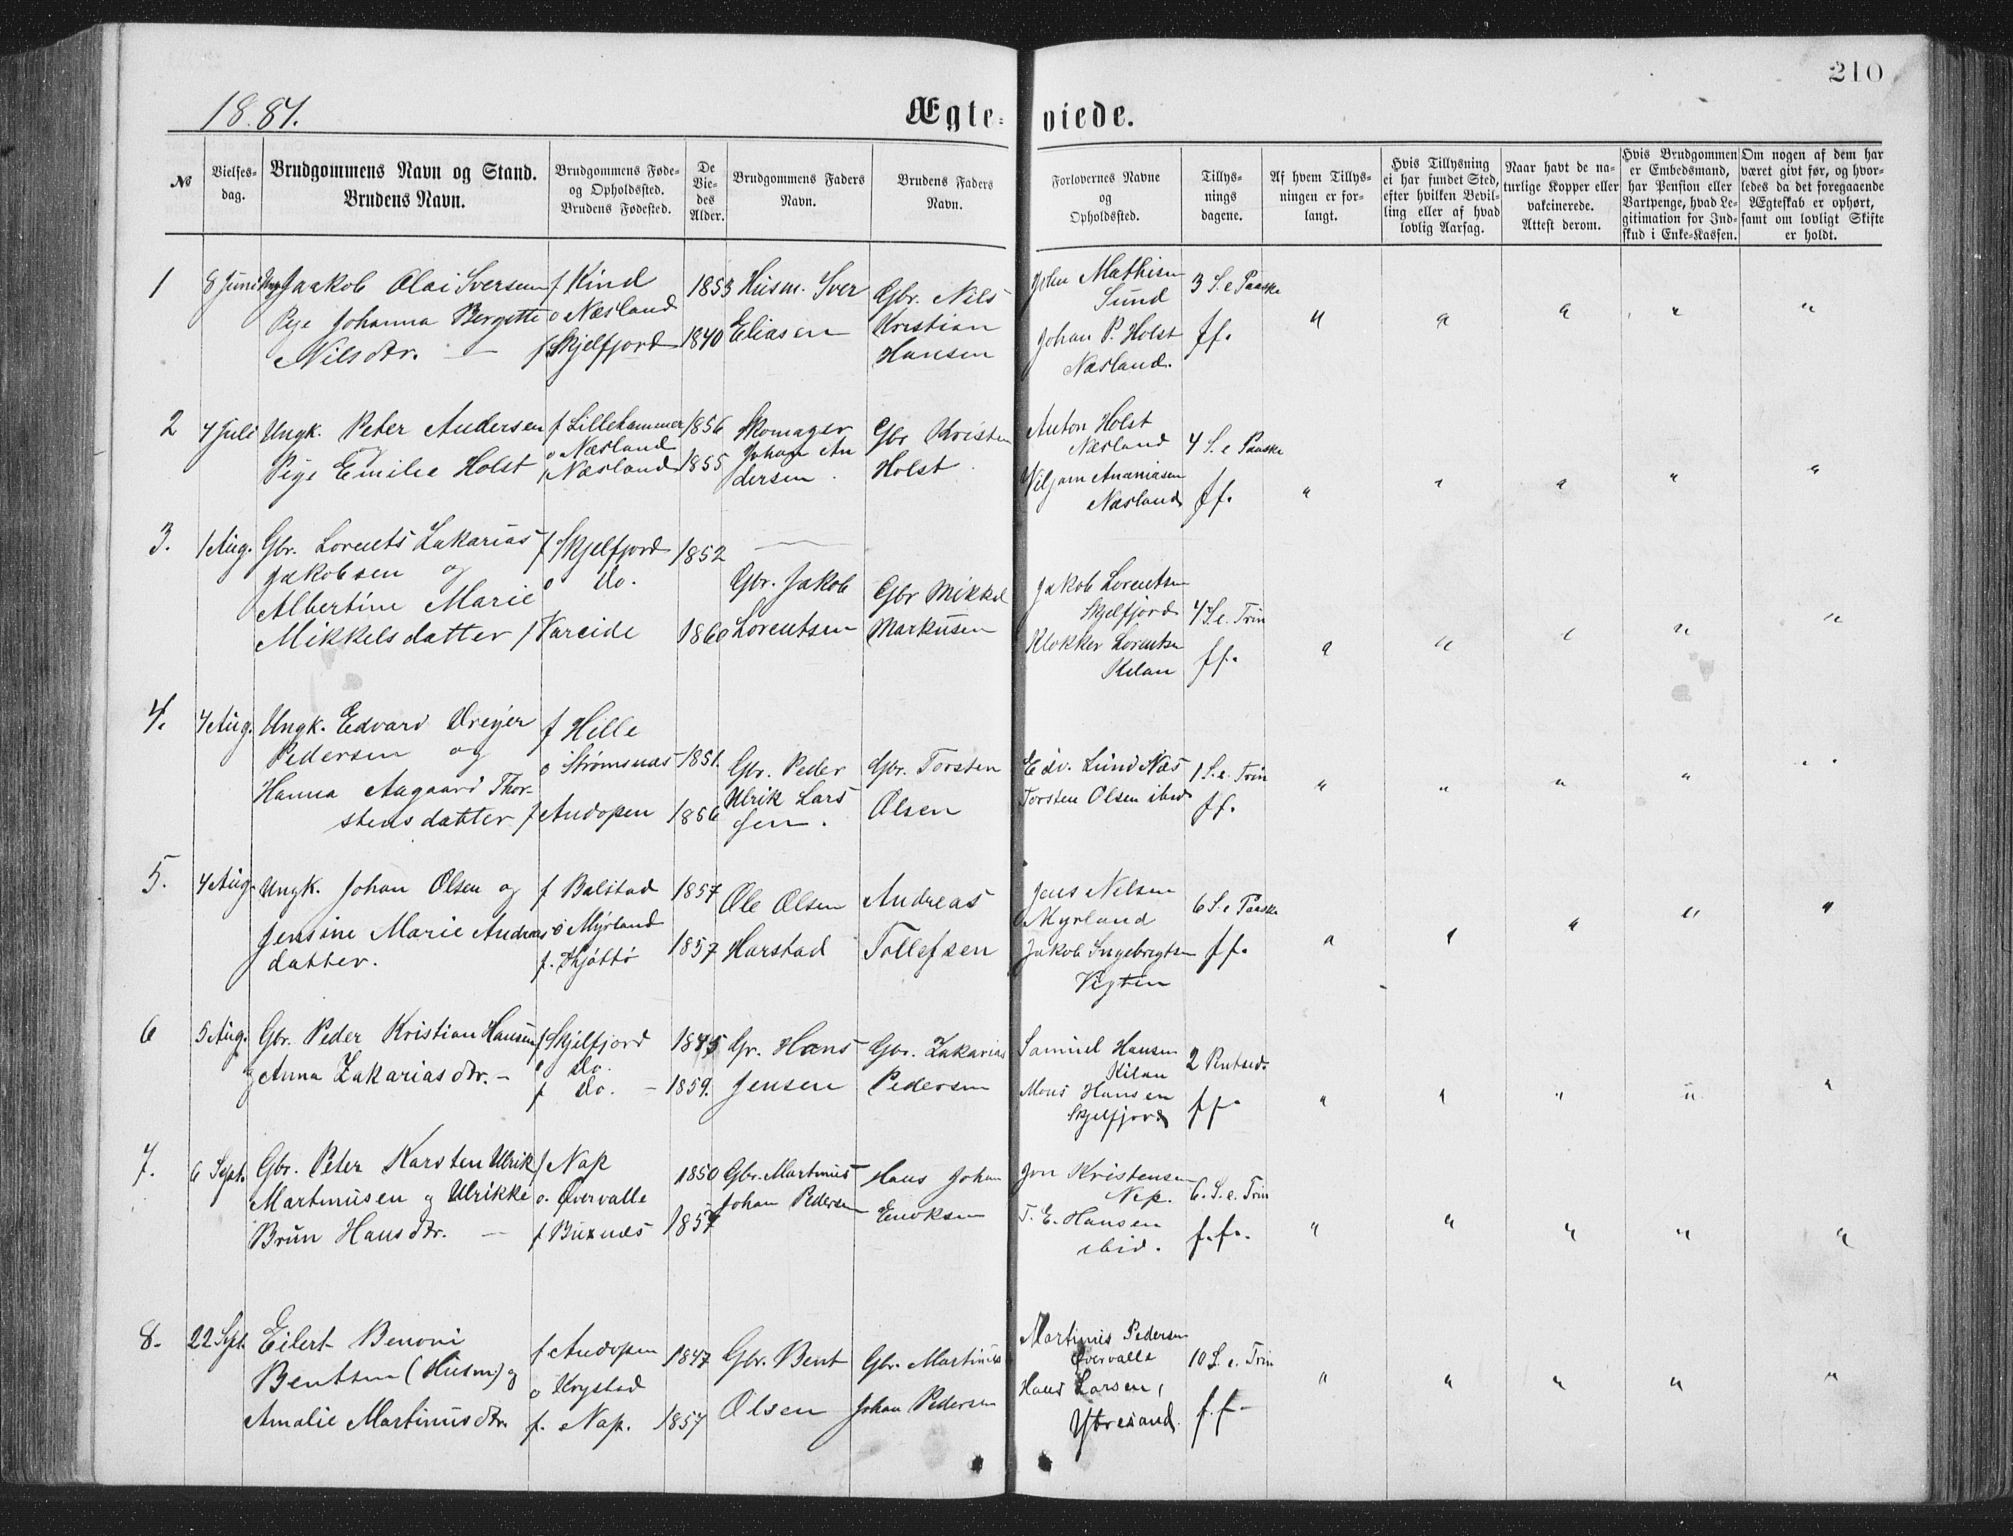 210
1881.
Ægteviede.
№
Vielsesdag.
Brudgommens Navn og Stand.
Brudens Navn.
Brudgommens Føde-
og Opholdssted.
Brudens Fødested.
De
Vie-
des
Alder.
Brudgommens Faders
Navn.
Brudens Faders
Navn.
Forlovernes Navne
og
Opholdssted.
Tillys-
nings
dagene.
Af hvem Tillys-
ningen er for-
langt.
Hvis Tillysning
ei har fundet Sted,
efter hvilken Bevil-
ling eller af hvad
lovlig Aarsag.
Naar havt de na-
turlige Kopper eller
vakcinerede.
Attest derom.
Hvis Brudgommen
er Embedsmand,
har Pension eller
Vartpenge, hvad Le-
gitimation for Ind-
skud i Enke-Kassen.
Om nogen af dem har
været givt før, og hvor-
ledes da det foregaaende
Ægteskab er ophørt,
samt om lovligt Skifte
er holdt.
1 8 Juni Ungk Jaakob Olai Sversen f Kind 1853 Husm. Sver Gbr. Nils
Pige Johanna Bergette o Næsland Eliasen Kristian
Nilsdtr. — f Skjelfjord 1840 Hansen
John Mathisen 3 S. e Paaske
Sund
Johan P. Holst ff. " " " " "
Næsland.
2 4 Juli Ungk. Peter Andersen f Lillehammer 1856 Skomager Gbr Kristen
o Næsland Johan An
Pige Emilie Holst f Næsland 1855 dersen. Holst
Anton Holst
Næsland 4 S. e Paaske
Viljam Ananiasen
Næsland ff. " " " " "
3. 1 Aug. Gbr. Lorents Zakarias f Skjelfjord 1852 —
Jakobsen og o do. Gbr. Jakob Gbr Mikkel
Albertine Marie
Mikkelsdatter f Vareide 1860 Lorentsen Markusen
Jakob Lorentsen
Skjelfjord 4 S. e. Trin
Klokker Lorentsen
Kilan ff. " " " " "
4. 4 Aug. Ungk. Edvard Dreyer f Helle
Pedersen og o Strømsnæs 1851. Gbr. Peder Gbr. Torsten
Hanna Aagaard Thor- Ulrik Lars
stensdatter f Andopen 1856 sen. Olsen
Edv. Lund Næs 1 S. e. Trin
Torsten Olsen ibid ff. " " " " "
5. 4 Aug. Ungk. Johan Olsen og f Balstad 1857 Ole Olsen Andreas
Jensine Marie Andreas o Myrland
datter. f. Tjøttø 1857 Harstad Tollefsen
Jens Nilsen 6 S. e Paaske
Myrland
Jakob Ingebrigtsen ff. " " " " "
Vigten
6 5 Aug. Gbr. Peder Kristian Hansen f Skjelfjord 1845 Gr. Hans Gbr. Zakarias
og Anna Zakariasdtr. – o do.
f do. – 1859. Jensen Pedersen
Samuel Hansen
Kilan 2 Pintsed.
Mons Hansen
Skjelfjord ff. " " " " "
7. 6 Sept. Gbr. Peter Karsten Ulrik f Nap 1850 Gbr. Martinus Hans Johan
Martinusen og Ulrikke o. Øvervalle Johan Pedersen
Brun Hansdtr. — f Buxnæs Enoksen
Jon Kristensen
Nap. 6. S. e. Trin
T. E. Hansen
ibid. f.f. " " " " "
8. 22 Sept. Eilert Benoni
Bentsen (Husm) og f Andopen 1847 Gbr. Bent Gbr. Martinus
o Krystad
Amalie Martinusdtr. f. Nap. 1857 Olsen Johan Pedersen
Martinus Pedersen
Øvervalle 10 S. e. Trin
Hans Larsen, " " " " "
Ytresand. f.f.